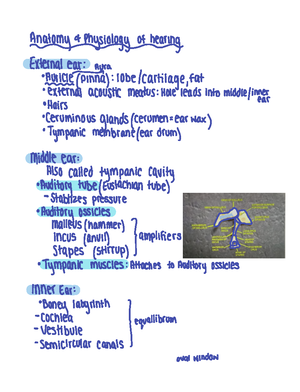 Anatomy & Physiology of hearing
External ear:
Auricle (pinna): lobe/cartilage, fat
• external acoustic meatus: Hole leads into middle/inner
ear
• Hairs
• Ceruminous glands (cerumen = ear wax)
• Tympanic membrane (ear drum)
Middle ear:
Also called tympanic cavity
• Auditory tube (Eustachian tube)
- Stabilizes pressure
• Auditory ossicles
malleus (hammer)
incus (anvil)
Stapes (stirrup)
amplifiers
• Tympanic muscles: Attaches to Auditory Ossicles
Inner Ear:
• Boney labyrinth
- Cochlea
- Vestibule
- Semicircular canals
equilibrium
oval window